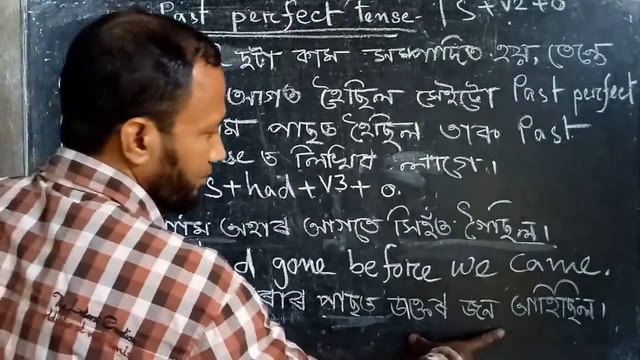 Past perfect tense- | S+V2+O
দুটা কাম সম্পাদিত হয়, তেন্তে
আগত হৈছিল সেইটো Past perfect
পাছত হৈছিল তাক Past
ত লিখিব লাগে।
S+had+V3+O.
অহাৰ আগতে সিহঁত গৈছিল।
gone before we came.
পাছত ডাক্তৰ জন আহিছিল।